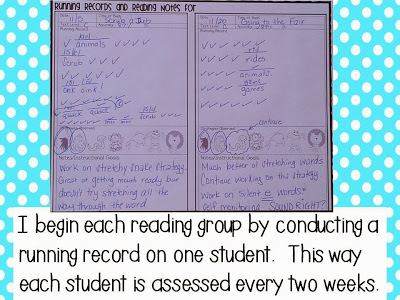 Running Records and Reading Notes for
Date 11/5
Scrub a Dub
Running Record
animals
Scrub
oink oink!
quack quack
Notes/Instructional Goals
Work on stretchy snake strategy.
Great at getting mouth ready but
doesn't try stretching all the
way through the word
Date 11/20
Going to the Fair
Running Record
rides
animals
games
games
continue
Notes/Instructional Goals
Much better at stretching words
Continue working on this strategy
Work on silent e words.
self monitoring SOUND RIGHT?
I begin each reading group by conducting a
running record on one student. This way
each student is assessed every two weeks.